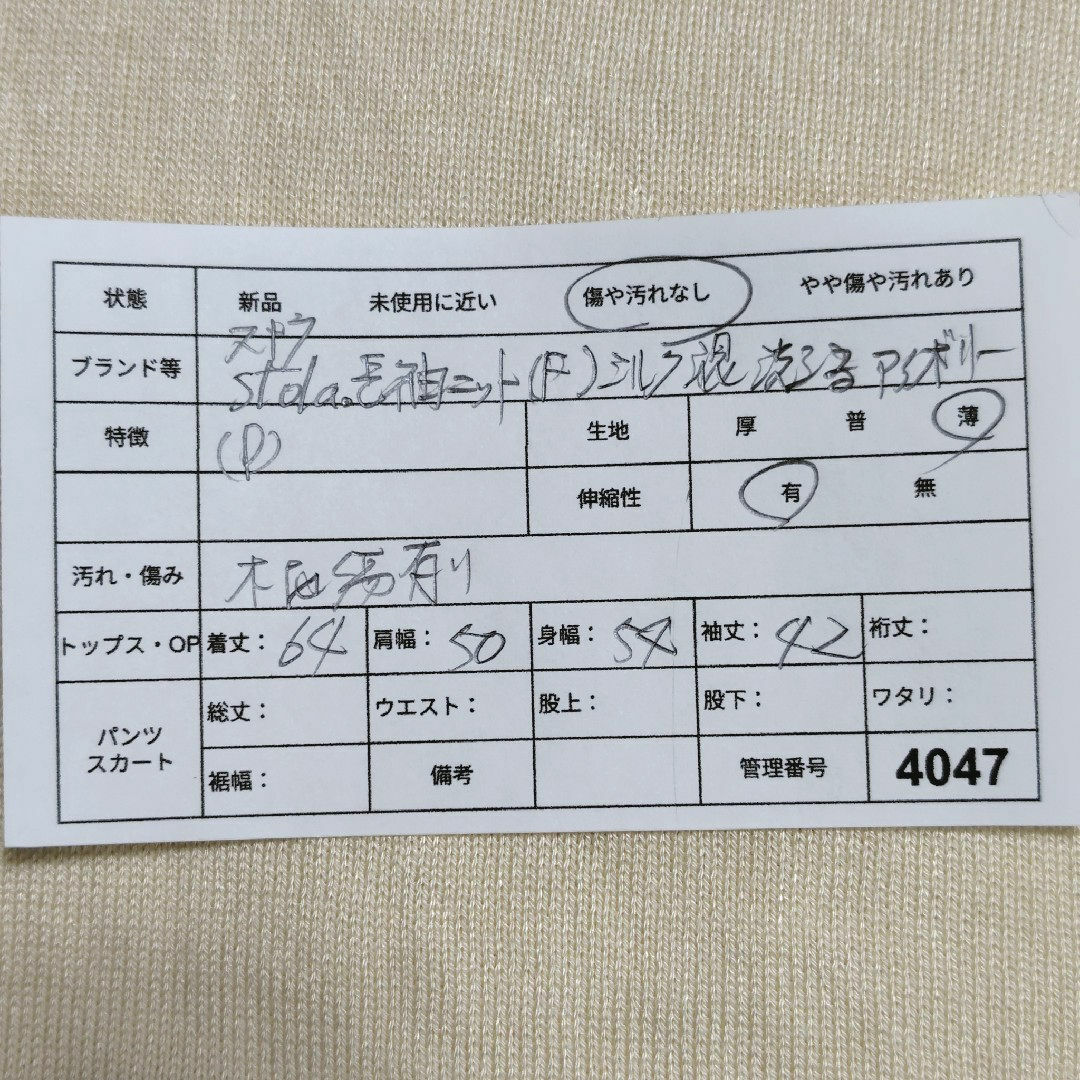 状態 新品 未使用に近い 傷や汚れなし やや傷や汚れあり
ストラ
ブランド等 stola. 長袖ニット(F)シルク混 洗える アイボリー
特徴 (P) 生地 厚 普 薄
伸縮性 有 無
汚れ・傷み 有り
トップス・OP 着丈: 64 肩幅: 50 身幅: 54 袖丈: 42 裄丈:
パンツ
スカート
総丈: ウエスト: 股上: 股下: ワタリ:
裾幅: 備考 管理番号 4047